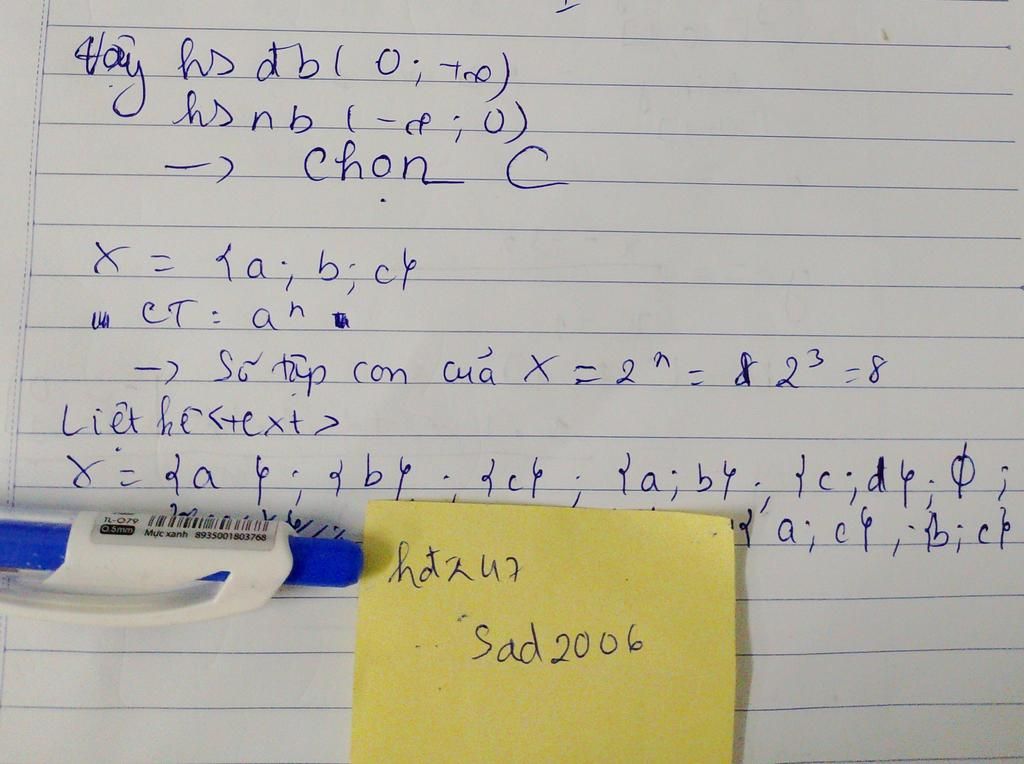 Vậy hs đb ( 0 ; +∞)
hs nb ( -∞ ; 0)
-> Chọn C
X = {a ; b ; c}
CT : aⁿ
-> Số tập con của X = 2ⁿ = 2³ = 8
Liệt kê <text>
X = {a } ; {b} ; {c} ; {a ; b} ; {c ; d} ; ∅ ;
{a ; c} ; {b ; c}
TL-079
0.5mm
Mực xanh 8935001803768
hđz47
Sad2006